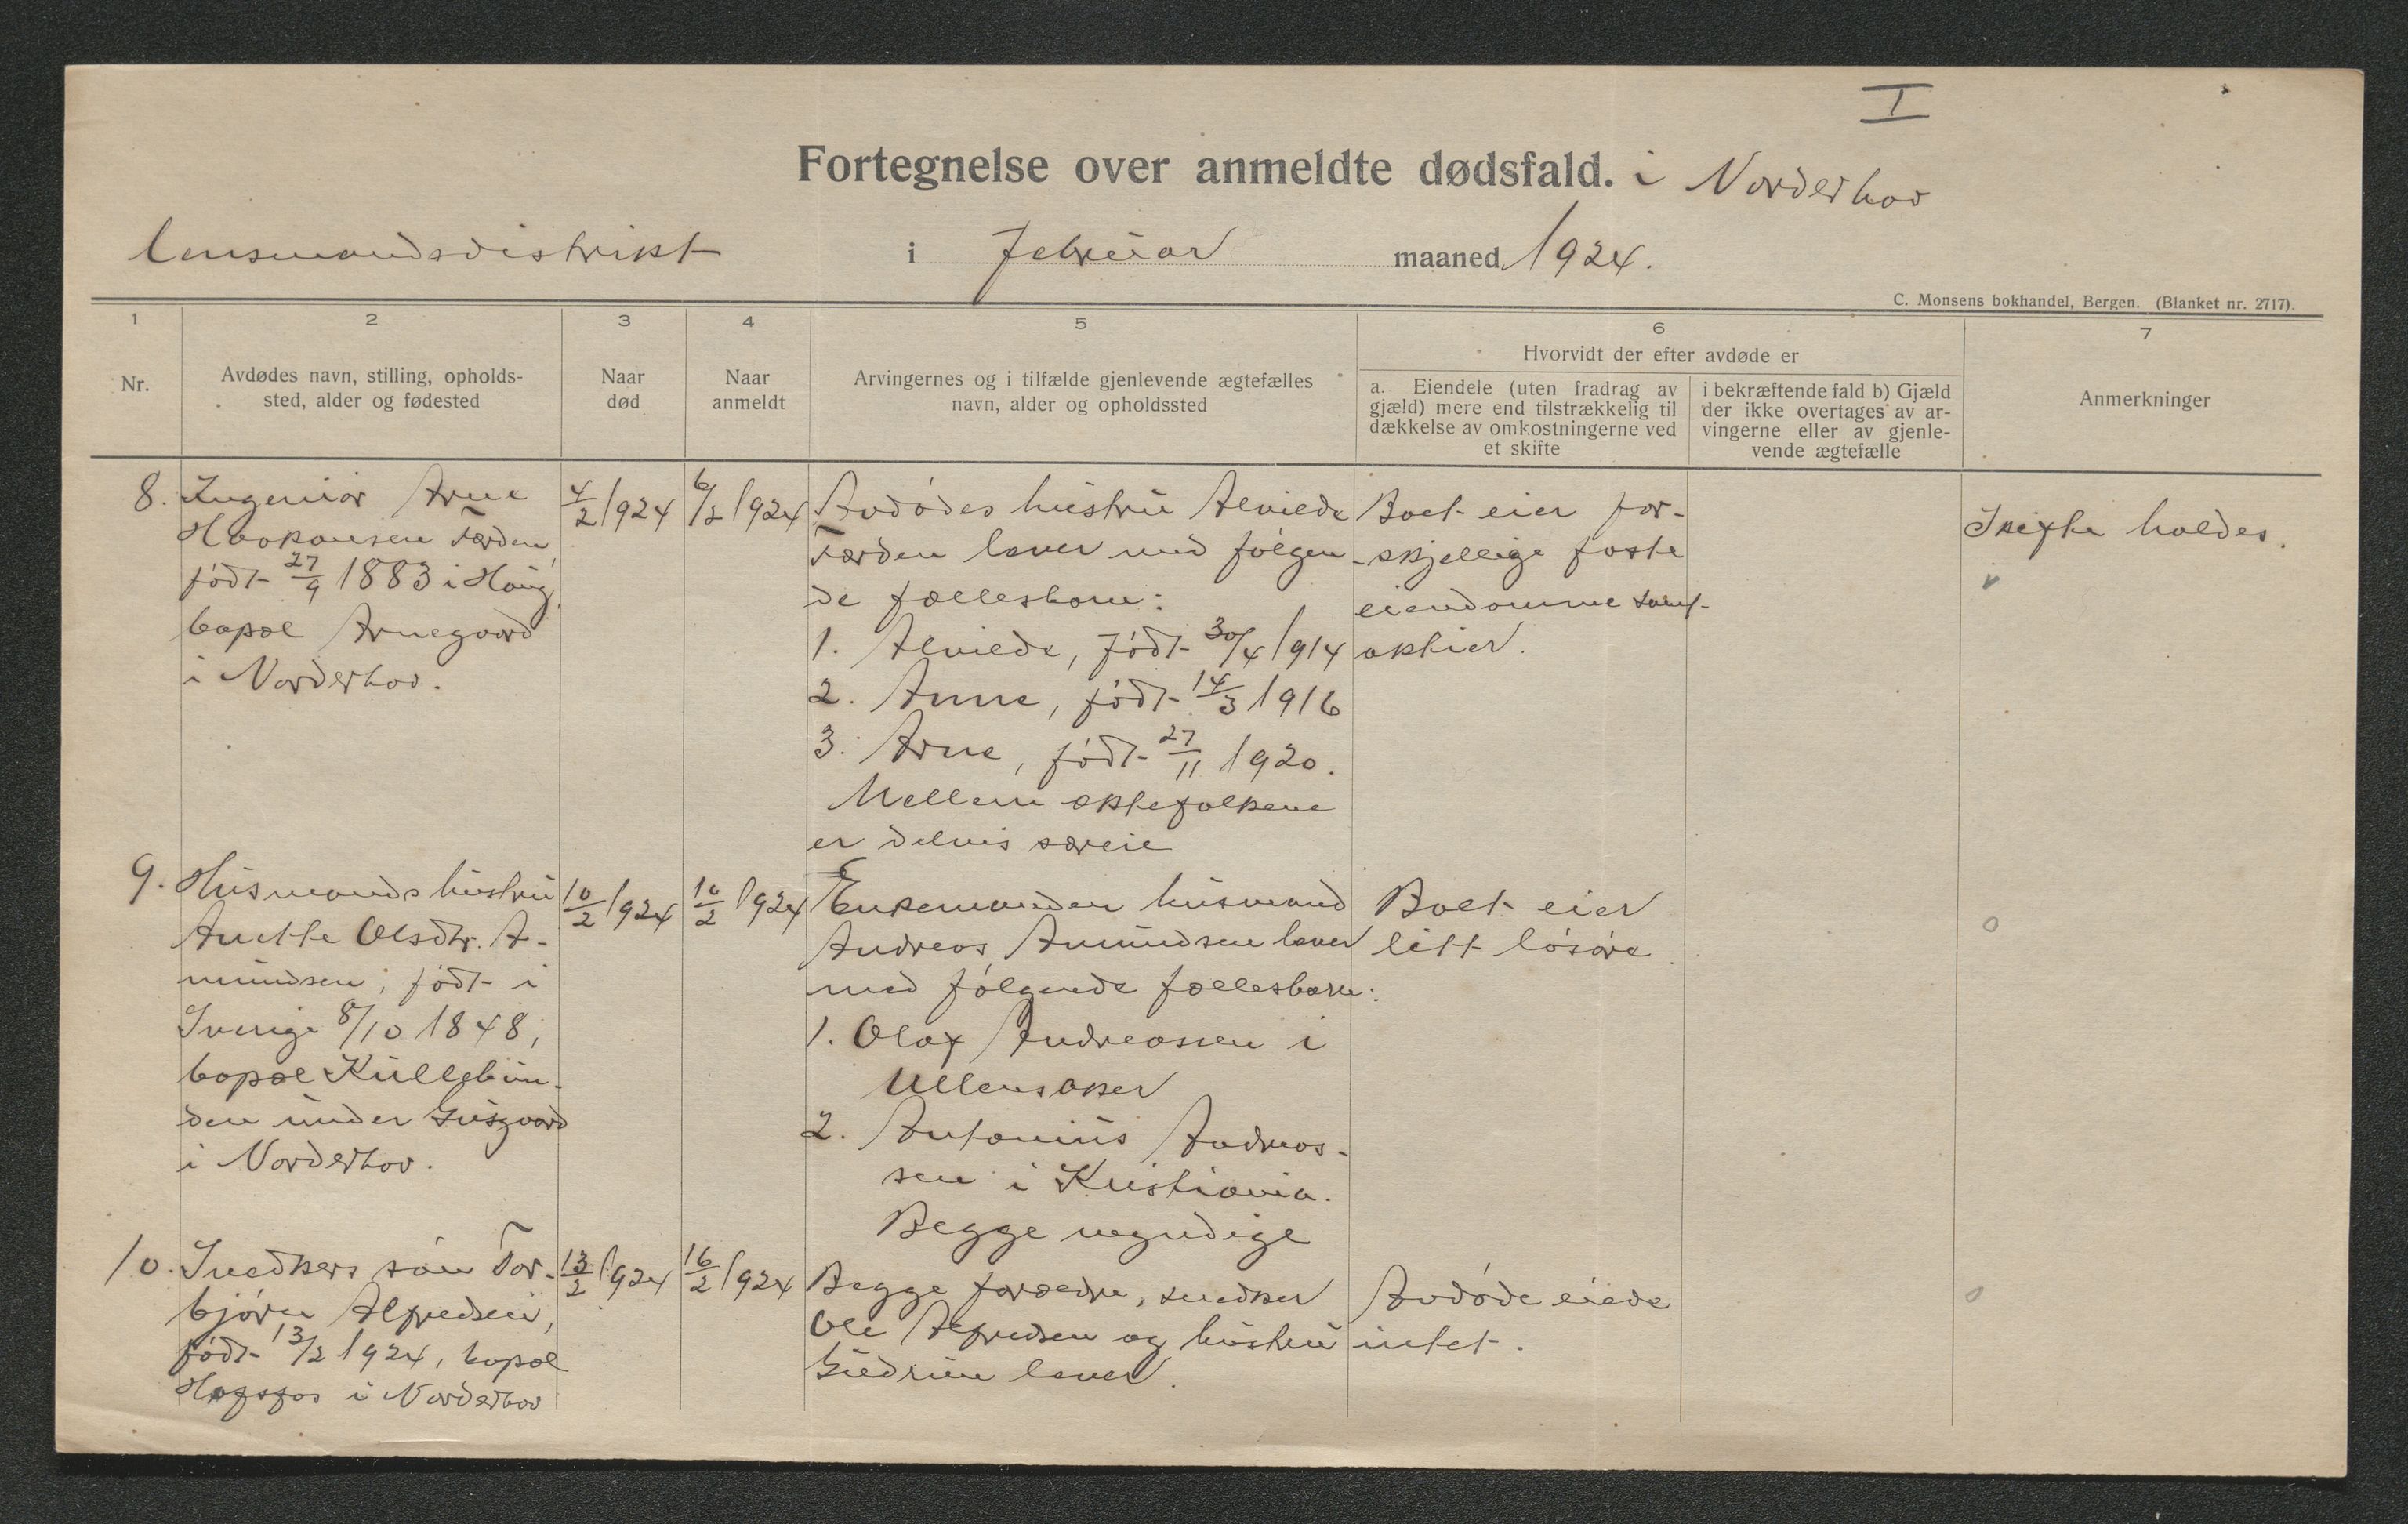 I
Fortegnelse over anmeldte dødsfald. i Norderhov
lensmandsdistrikt i Februar maaned 1924.
C. Monsens bokhandel, Bergen. (Blanket nr. 2717).
1 2 3 4 5 6 7
Nr.
Avdødes navn, stilling, opholds-
sted, alder og fødested
Naar
død
Naar
anmeldt
Arvingernes og i tilfælde gjenlevende ægtefælles
navn, alder og opholdssted
Hvorvidt der efter avdøde er
a. Eiendele (uten fradrag av
gjæld) mere end tilstrækkelig til
dækkelse av omkostningerne ved
et skifte
i bekræftende fald b) Gjæld
der ikke overtages av ar-
vingerne eller av gjenle-
vende ægtefælle
Anmerkninger
8. Ingeniør Arne
Haakonsen Færden,
født 27/9 1883 i Houg,
bopæl Arnegaard
i Norderhov.
4/2 1924
6/2 1924
Avdødes hustru Alvilde
Færden lever med følgen-
de fællesbarn:
1. Alvilde, født 30/4 1914
2. Anne, født 14/3 1916
3. Arne, født 27/11 1920.
Mellem ektefolkene
er delvis særeie
Boet eier for-
skjellige faste
eiendomme samt
aktier.
Skifte holdes.
v
9. Husmands hustru
Anette Olsdtr. A-
mundsen, født i
Sverige 8/10 1848,
bopæl Kullebun-
den under Gusgaard
i Norderhov.
10/2 1924
10/2 1924
Enkemanden husmand
Andreas Amundsen lever
med følgende fællesbarn:
1. Olaf Andreassen i
Ullensaker
2. Antonius Andreas-
sen i Kristiania.
Begge myndige
Boet eier
litt løsøre.
o
10. Snedkers søn Tor-
bjørn Alfredsen,
født 13/2 1924, bopæl
Hofsfos i Norderhov
13/2 1924
16/2 1924
Begge forældre, snedker
Ole Alfredsen og hustru
Gudrun lever.
Avdøde eiede
intet.
o